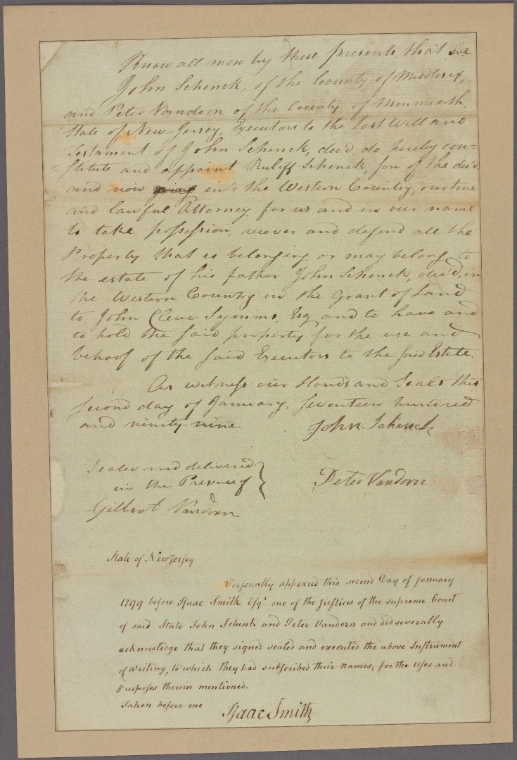 Know all men by these presents that we
John Schenck, of the County of Middlesex,
and Peter Vandorn of the County of Monmouth,
State of New Jersey, Executors to the Last Will and
Testament of John Schenck, dec'd do hereby con-
stitute and appoint Ruliff Schenck, son of the dec'd
and now in the Western Country, our true
and lawful Attorney for us and in our name
to take possession, recover and defend all the
Property that is belonging or may belong to
the estate of his father John Schenck, dec'd, in
the Western Country in the Grant of Land
to John Cleve Symms, Esq and to have and
to hold the said property for the use and
behoof of the said Executors to the said Estate
As witness our Hands and Seals this
second day of January, seventeen hundred
and ninety nine
John Schenck
Sealed and delivered
in the Presence of
Peter Vandorn
Gilbert Vandorn
State of New Jersey
Personally appeared this second Day of January
1799 before Isaac Smith Esqr one of the Justices of the supreme Court
of said State John Schenk and Peter Vandorn and did severally
acknowledge that they signed sealed and executed the above Instrument
of Writing, to which they had subscribed their names, for the Uses and
Purposes therein mentioned.
Taken before me
Isaac Smith